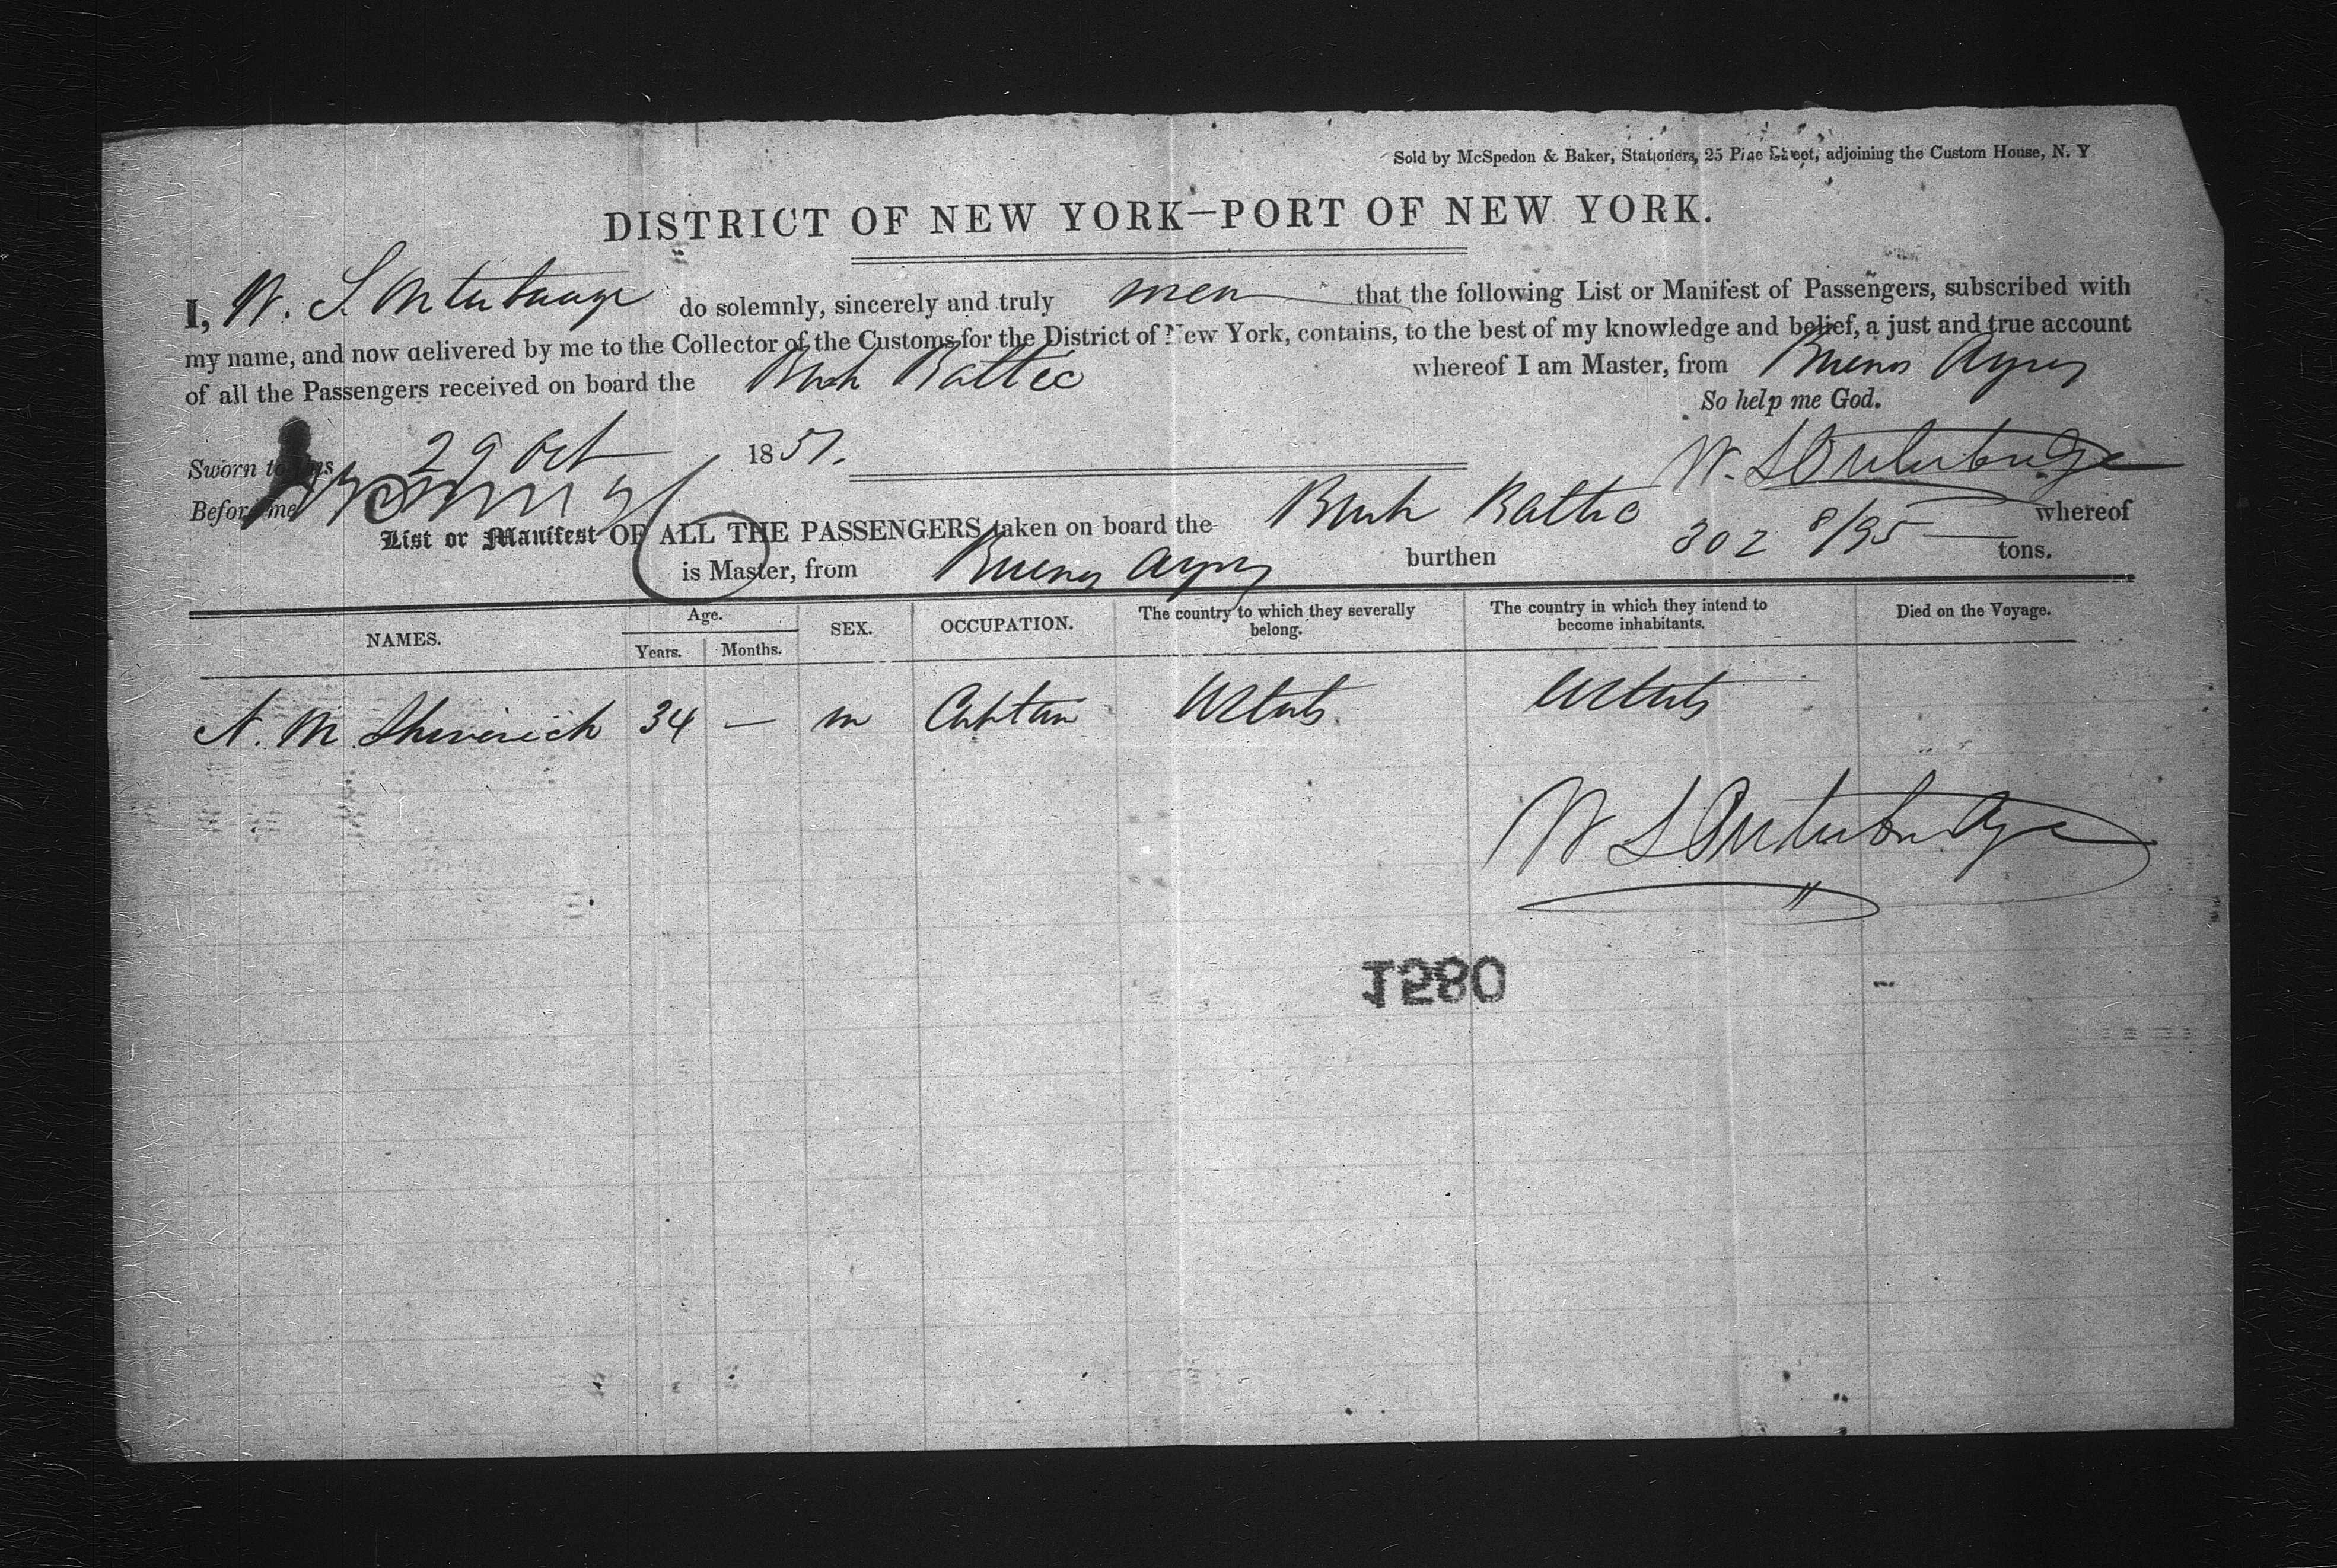 Sold by McSpedon & Baker, Stationers, 25 Pine Street, adjoining the Custom House, N. Y
DISTRICT OF NEW YORK—PORT OF NEW YORK.
I, W. S. Outerbridge do solemnly, sincerely and truly swear that the following List or Manifest of Passengers, subscribed with
my name, and now delivered by me to the Collector of the Customs for the District of New York, contains, to the best of my knowledge and belief, a just and true account
of all the Passengers received on board the Bark Baltic whereof I am Master, from Buenos Ayres
So help me God.
Sworn to this 29 Oct 1851. W. S Outerbridge
Before me
List or Manifest OF ALL THE PASSENGERS taken on board the Bark Baltic whereof
is Master, from Buenos Ayres burthen 302 8/95 tons.
NAMES. Age. Years. Months. SEX. OCCUPATION. The country to which they severally belong. The country in which they intend to become inhabitants. Died on the Voyage.
N. M. Shiverick 34 — m Captain U States U States
W S Outerbridge
1580